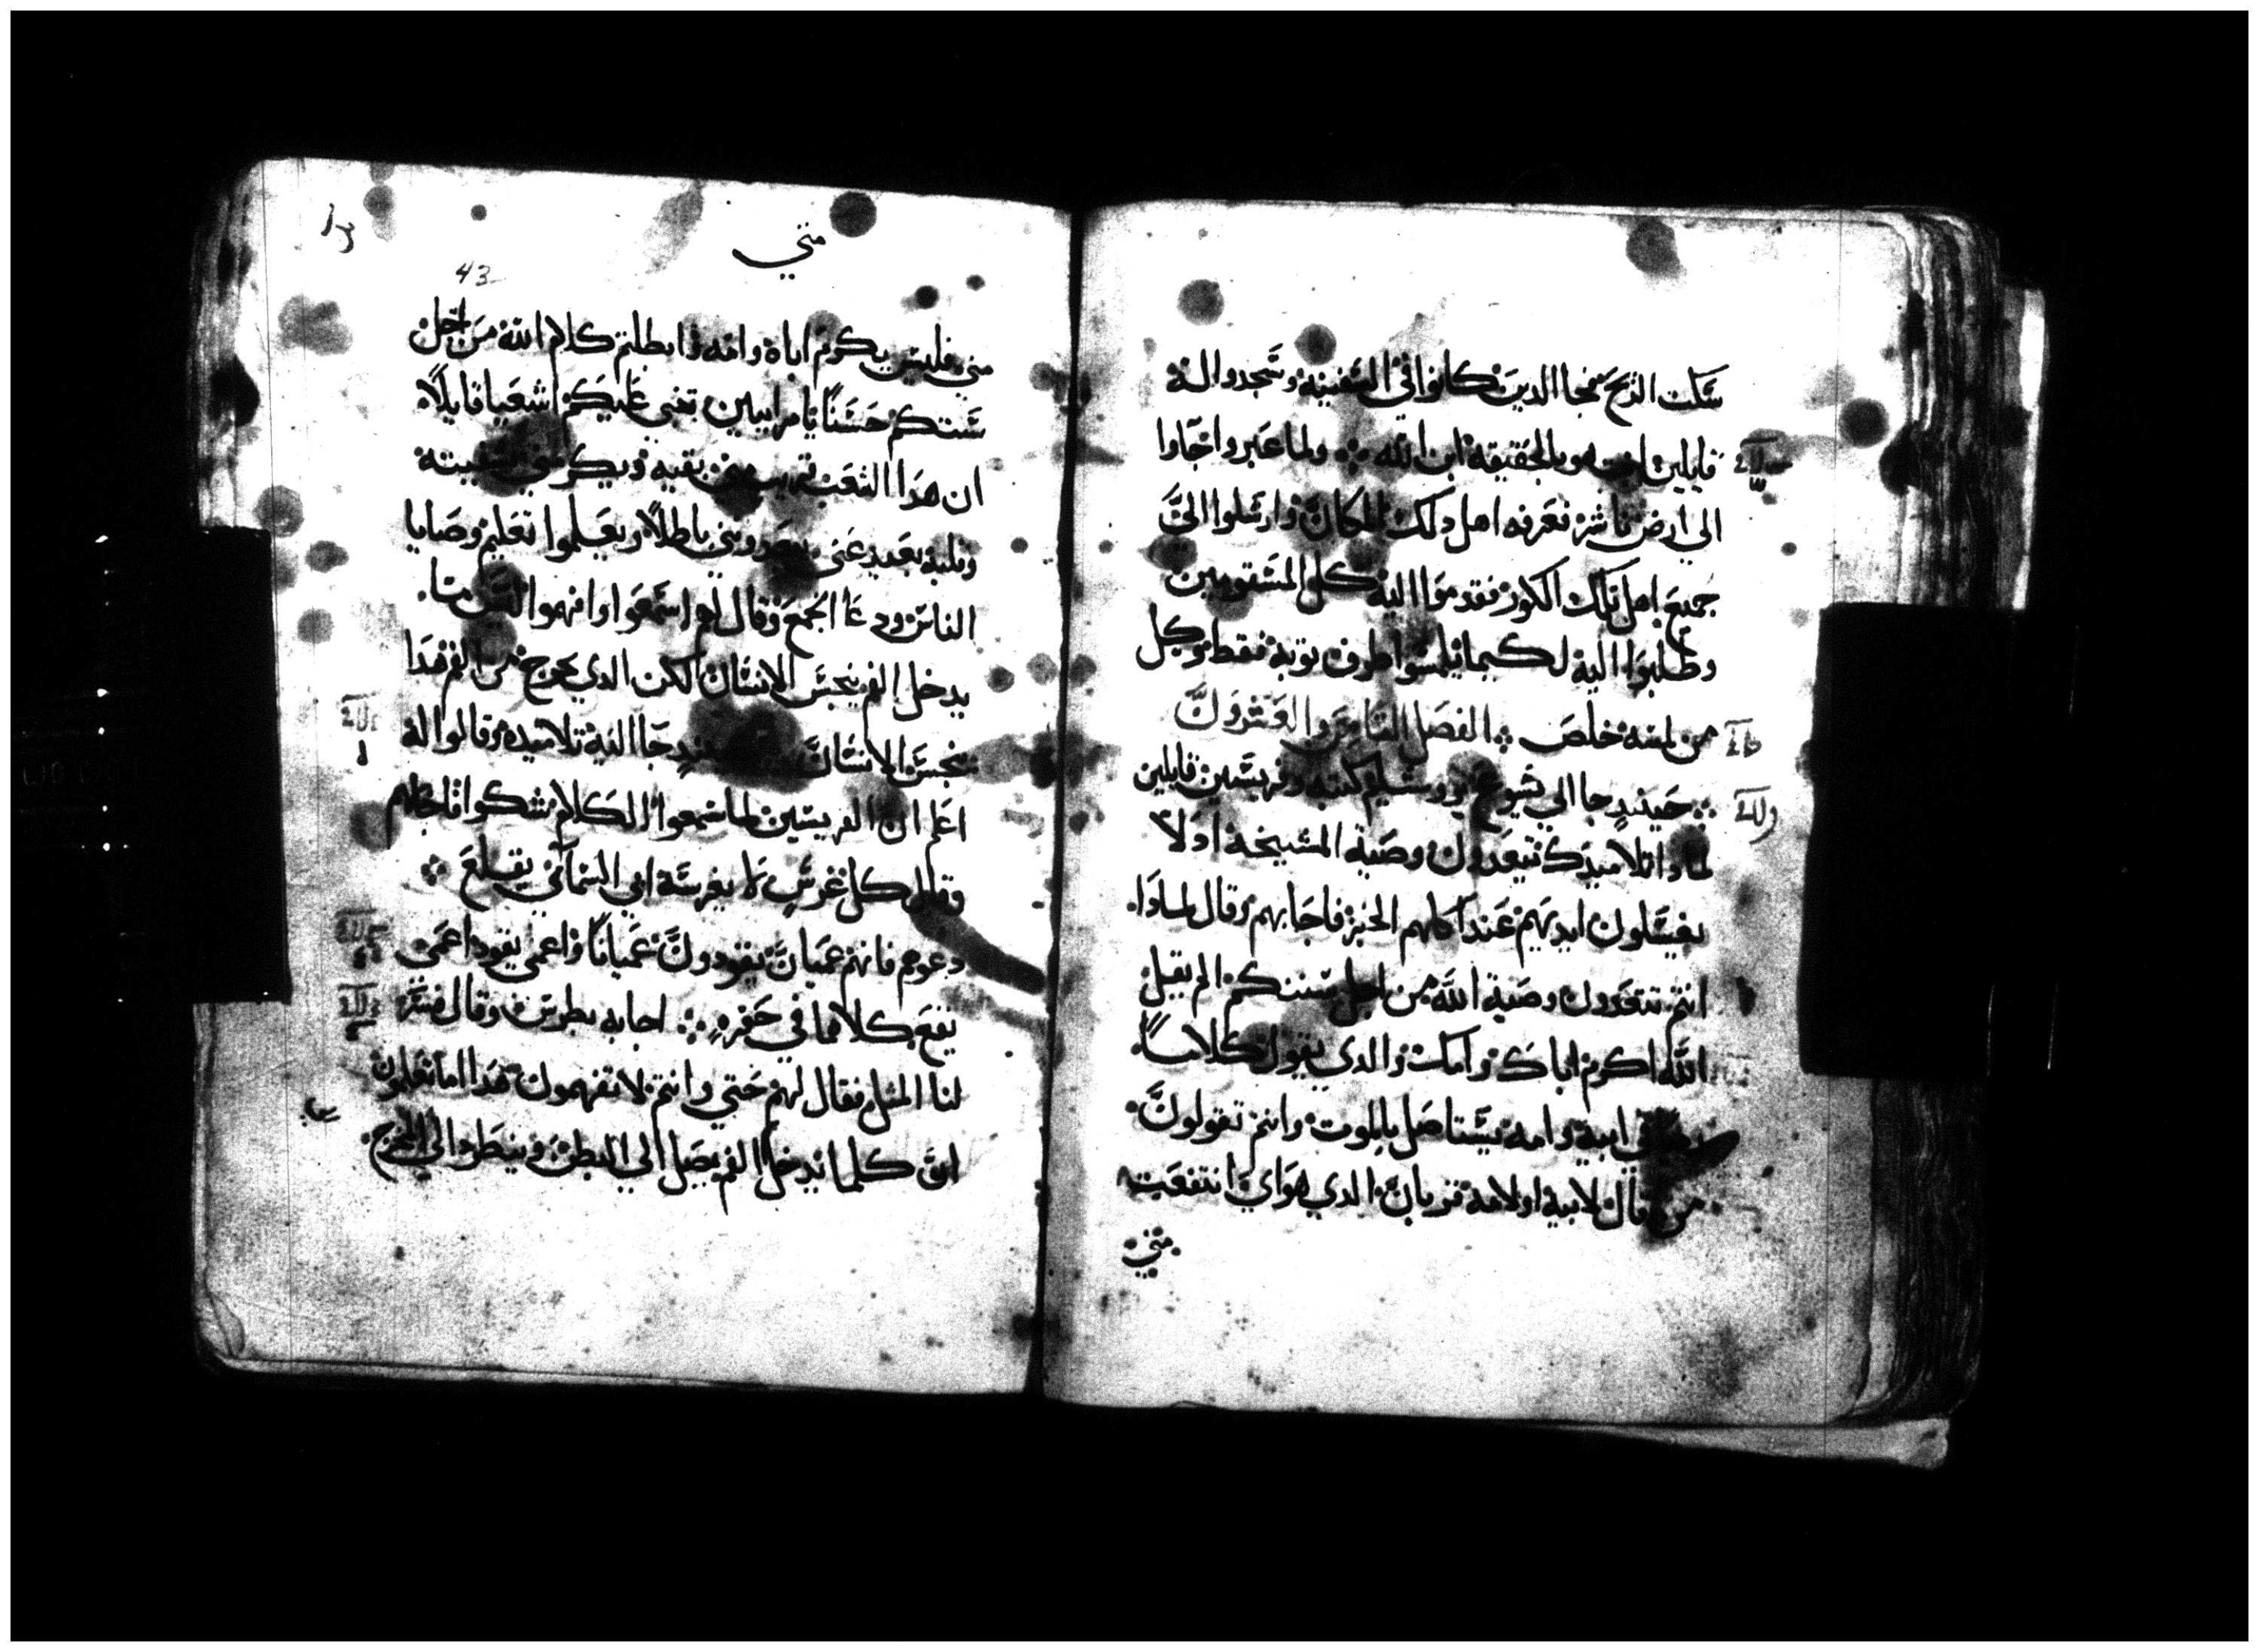 سكت الريح فجا الدين كانوا في السفينة وسجدوا له
قايلين بالحقيقة ابن الله ولما عبروا جاوا
الي ارض ناشر فعرفه اهل دلك المكان وارسلوا الي
جميع اهل تلك الكور فقدموا اليه كل المسقومين
وطلبوا اليه لكيما يلمسوا طرف توبه فقط وكل
من لمسه خلص الفصل التامن والعشرون
حينيدٍ جا الي يشوع كتبه وفريسين قايلين
لمادا تلاميدك يتعدون وصية المشيخة اد لا
يغسلون ايديهم عند اكلهم الخبز فاجابهم وقال لمادا
انتم تتعدون وصية الله من اجل سننكم الم يقيل
الله اكرم اباك وامك والدي يقول كلاما
في ابيه وامه يستاصل بالموت وانتم تقولون
من قال لابيه او لامه قربان الدي هواي انتفعت
مني
متي
43
مني فليس يكرم اباه وامه فابطلتم كلام الله من اجل
سنتكم حسنًا يا مراييين تنبي عليكم اشعيا قايلاً
ان هدا الشعب قريب مني بفيه ويكرمني بشفيته
وقلبه بعيد عني باطلاً ويعلموا تعليم وصايا
الناس ودعا الجمع وقال لهم اسمعوا وافهموا ليس ما
يدخل الفم ينجس الانسان لكن الدي يخرج من الفم هدا
ينجس الانسان حينيدٍ جا اليه تلاميده وقالوا له
اعلم ان الفريسين لما سمعوا الكلام شكوا فاجابهم
وقال كل غرسٍ لا يغرسه ابي السمآني يقلع
دعوهم فانهم عميان يقودون عميانًا واعمي يقود اعمي
يقع كلاهما في حفرهٍ اجابه بطرس وقال فسر
لنا المثل فقال لهم حتي وانتم لا تفهمون هدا اما تعلمون
ان كلما يدخل الفم يصل الي البطن وينطرد الي المخرج